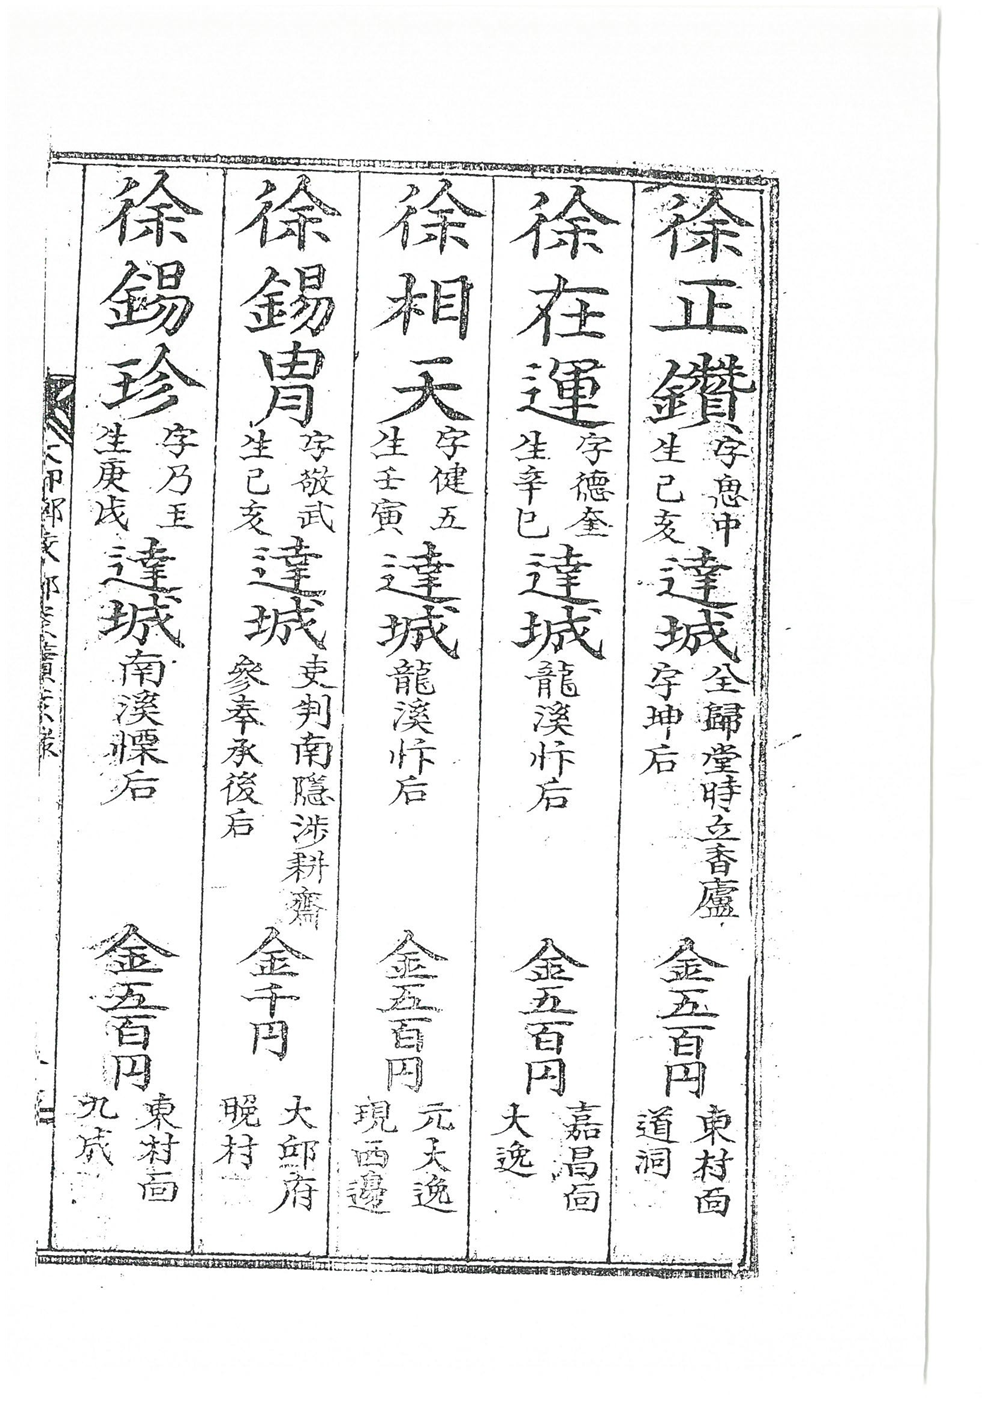 徐正鑽
字惠中
生己亥
達城
全歸堂時立香廬
字坤后
金五百円
東村面
道洞
徐在運
字德奎
生辛巳
達城
龍溪忭后
金五百円
嘉昌面
大逸
徐相天
字健五
生壬寅
達城
龍溪忭后
金五百円
元大逸
現西邊
徐錫冑
字敬武
生己亥
達城
吏判南隱涉耕齋
參奉承後后
金千円
大邱府
晩村
徐錫珍
字乃玉
生庚戌
達城
南溪慄后
金五百円
東村面
九成